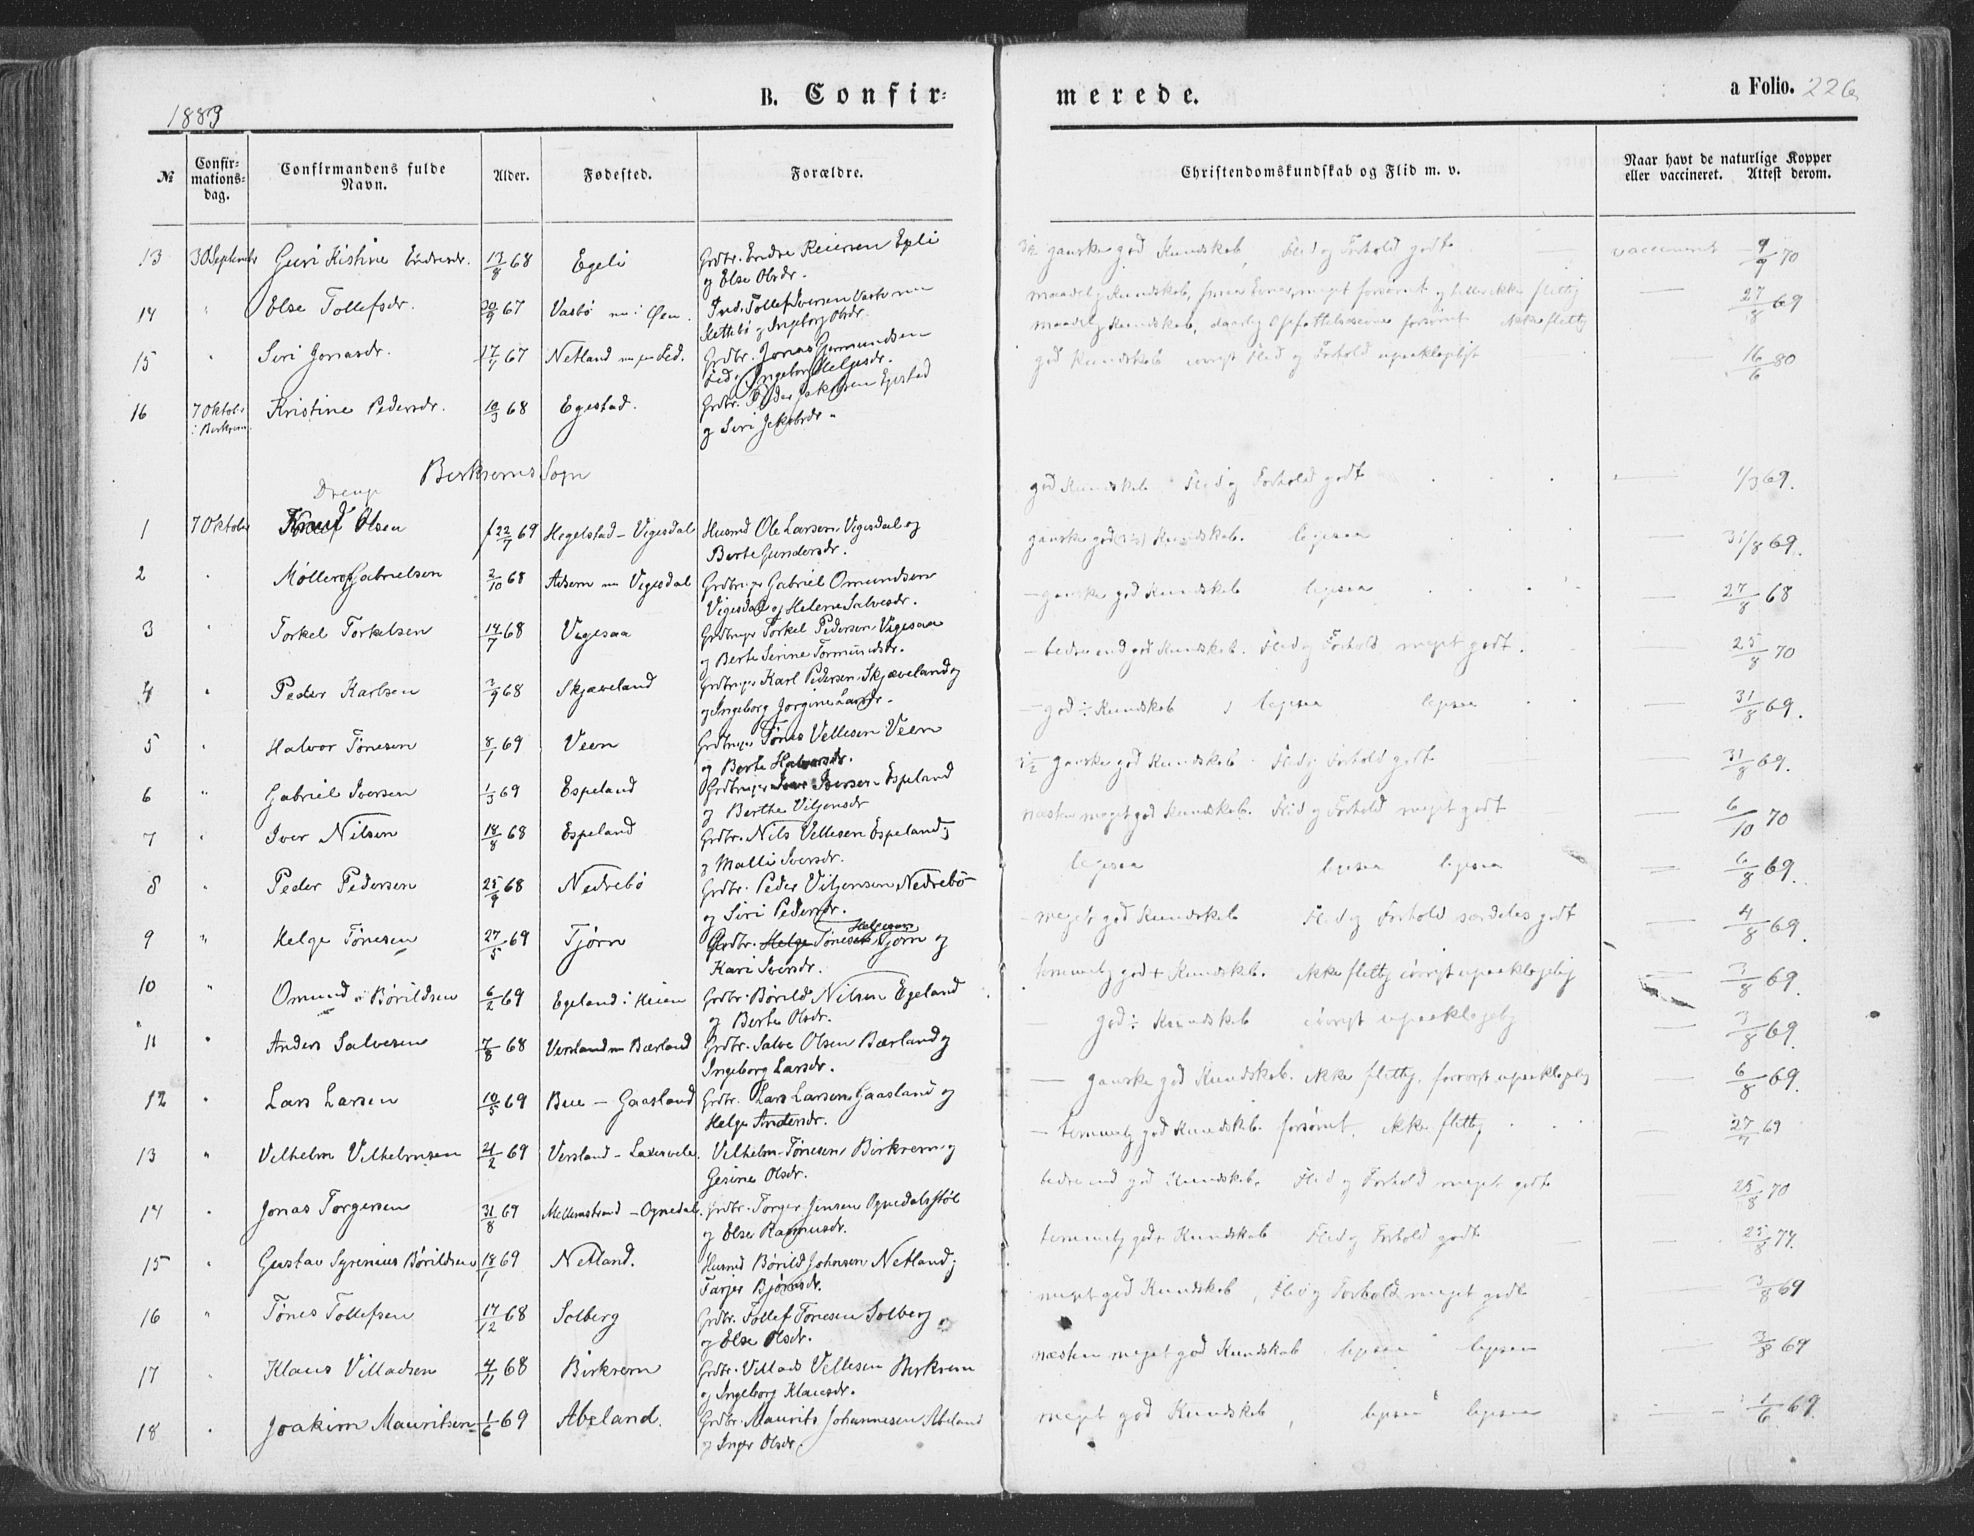 1883
B. Confir-
merede.
a Folio. 226
№
Confir-
mations-
dag.
Confirmandens fulde
Navn.
Alder.
Fødested.
Forældre.
Christendomskundskab og Flid m. v.
Naar havt de naturlige Kopper
eller vaccineret. Attest derom.
13 30 September Guri Kistine Endresdr. 13/8 68 Egeli Grdbr. Endre Reiersen Egeli
og Else Olsdr.
ganske god Kundskab, Flid og Forhold godt vaccineret 9/9 70
14 " Else Tollefsdr. 20/9 67 Vasbø nu i Øen. Ind. Tollef Iversen Vasbø nu
Kettebø og Ingeborg Olsdr.
27/8 69
15 " Siri Jonasdr. 17/7 67 Netland nu paa Fed. Grdbr. Jonas Gormundsen
Fed og Ingeborg Helgesdr.
god Kundskab iøvrigt Flid og Forhold upaaklageligt 16/6 80
16 7 Oktob. i Birkrem Kristine Pedersdr. 10/3 68 Egestad. Grdbr. Peder Jakobsen Egestad
og Siri Jakobsdr.
Birkrems Sogn
Drenge
god Kundskab Flid og Forhold godt 1/3 69.
1 7 Oktober Knud Olsen f 22/7 69 Hegelstad - Vigesdal Husmd Ole Larsen Vigesdal og
Berte Gundersdr.
ganske god Kundskab. ligesaa 31/8 69.
2 " Møllerop Gabrielsen 2/10 68 Adsem nu Vigesdal Grdbruger Gabriel Omundsen
Vigesdal og Helene Salvesdr.
- ganske god Kundskab ligesaa 27/8 68
3 " Torkel Torkelsen 14/7 68 Vigesaa Grdbruger Torkel Pedersen Vigesaa
og Berte Serine Tormundsdr.
- bedre end god Kundskab. Flid og Forhold meget godt. 25/8 70
4 " Peder Karlsen 3/9 68 Skjæveland Grdbruger Karl Pedersen Skjæveland og
og Ingeborg Jorgine Larsdr.
- god ÷ Kundskab, ligesaa ligesaa 31/8 69.
5 " Halvor Tønesen 8/1 69 Veen Grdbruger Tønes Vellesen Veen
og Berte Halvorsdr.
ganske god Kundskab. Flid og Forhold godt 31/8 69.
6 " Gabriel Iversen 1/3 69 Espeland Grdbruger Iver Iversen Espeland
og Berthe Viljensdr
næsten meget god Kundskab. Flid og Forhold meget godt 6/10 70
7 " Iver Nilsen 18/8 68 Espeland Grdbr. Nils Vellesen Espeland og
og Malli Iversdr.
ligesaa ligesaa ligesaa 6/8 69.
8 " Peder Pedersen 25/9 68 Nedrebø Grdbr. Peder Viljensen Nedrebø
og Siri Pedersdr.
- meget god Kundskab Flid og Forhold særdeles godt 4/8 69.
9 " Helge Tønesen 27/5 69 Tjørn Grdbr. Helge Tønesen Helgesen Tjørn og
Kari Iversdr.
temmelig god + Kundskab. ikke flittig iøvrigt upaaklagelig 3/8 69.
10 " Omund Børildsen 6/2 69 Egeland i Heien Grdbr. Børild Nilsen Egeland
og Berte Olsdr.
- god ÷ Kundskab iøvrigt upaaklagelig 3/8 69.
11 " Anders Salvesen 7/8 68 Versland nu Bærland Grdbr. Salve Olsen Bærland og
Ingeborg Larsdr.
- ganske god Kundskab. ikke flittig, forøvrigt upaaklagelig 6/8 69.
12 " Lars Larsen 10/5 69 Bue - Gaasland Grdbr. Lars Larsen Gaasland og
Helge Andersdr.
- temmelig god Kundskab. forsømt. ikke flittig 27/7 69
13 " Vilhelm Vilhelmsen 21/2 69 Versland - Laxesvele. Vilhelm Tønesen Birkrem og
Gesine Olsdr.
bedre end god Kundskab. Flid og Forhold meget godt 25/8 70
14 " Jonas Torgersen 31/8 69 Mellomstrand - Ognedal. Grdbr. Torger Jensen Ognedalsstøl
og Else Rasmusdr.
temmelig god + Kundskab Flid og Forhold godt 25/8 74.
15 " Gustav Syrenius Børildsen 18/1 69 Netland. Husmd Børild Johnsen Netland og
Tarjer Bjørnsdr.
meget god Kundskab, Flid og Forhold meget godt 3/8 69
16 " Tønes Tollefsen 17/12 68 Solberg Grdbr. Tollef Tønesen Solberg
og Else Olsdr.
næsten meget god Kundskab ligesaa ligesaa 3/8 69
17 " Klaus Villadsen 4/11 68 Birkrem Grdbr. Villads Vellesen Birkrem
og Ingeborg Klausdr.
meget god Kundskab, ligesaa ligesaa 1/6 69.
18 " Joakim Mauritsen 1/6 69 Abeland. Grdbr. Maurits Johannesen Abeland
og Inger Olsdr.